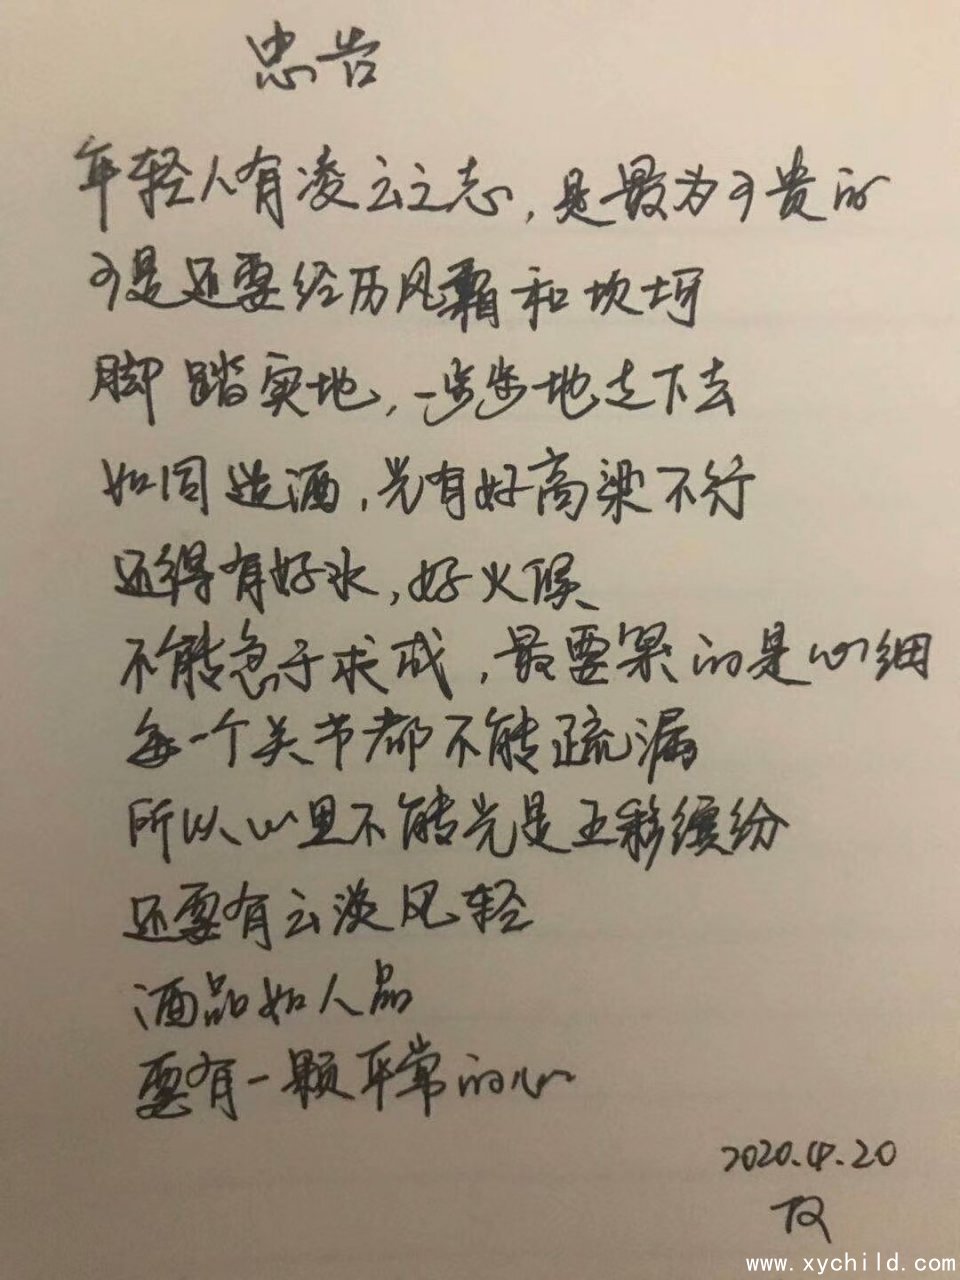 忠告
年轻人有凌云之志，是最为可贵的
可是还要经历风霜和坎坷
脚踏实地，一步步地走下去
如同造酒，光有好高粱不行
还得有好水，好火候
不能急于求成，最要紧的是心细
每一个关节都不能疏漏
所以心里不能光是五彩缤纷
还要有云淡风轻
酒品如人品
要有一颗平常的心
2020.4.20
www.xychild.com